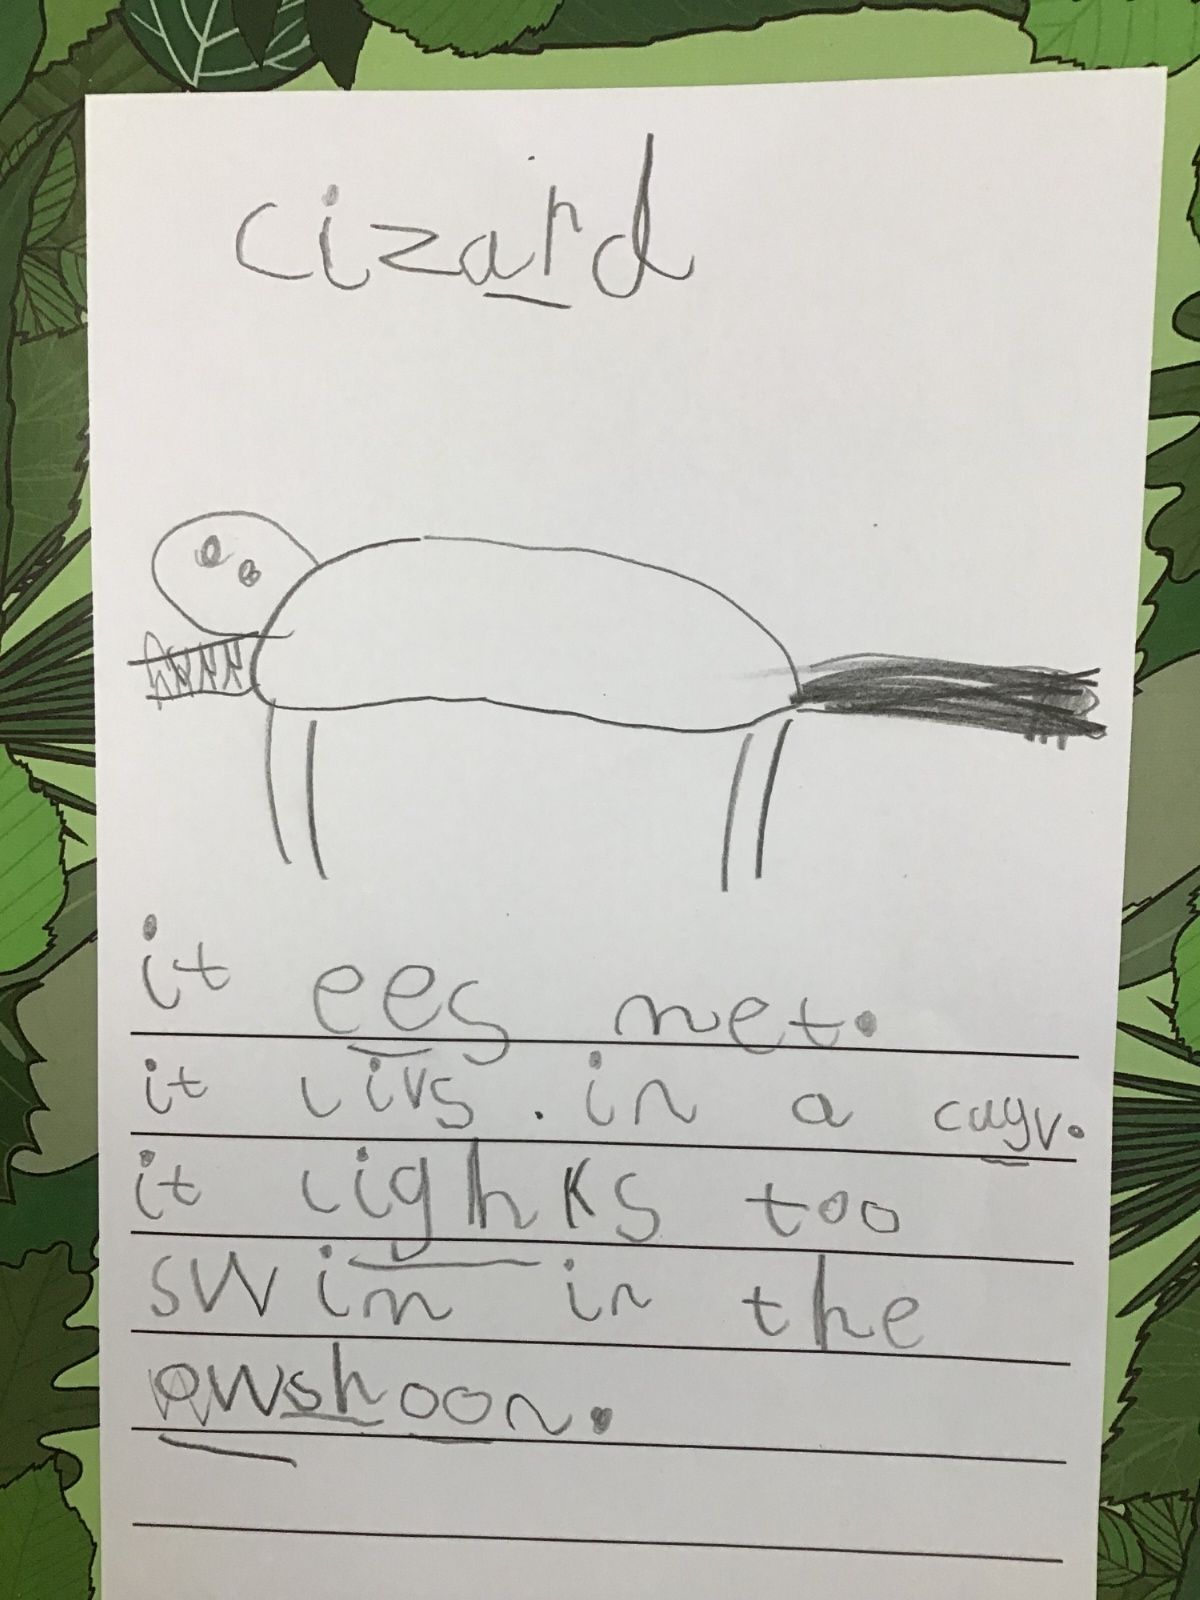 cizard
it ees met.
it livs . in a cayv.
it lighks too
swim in the
owshoon.